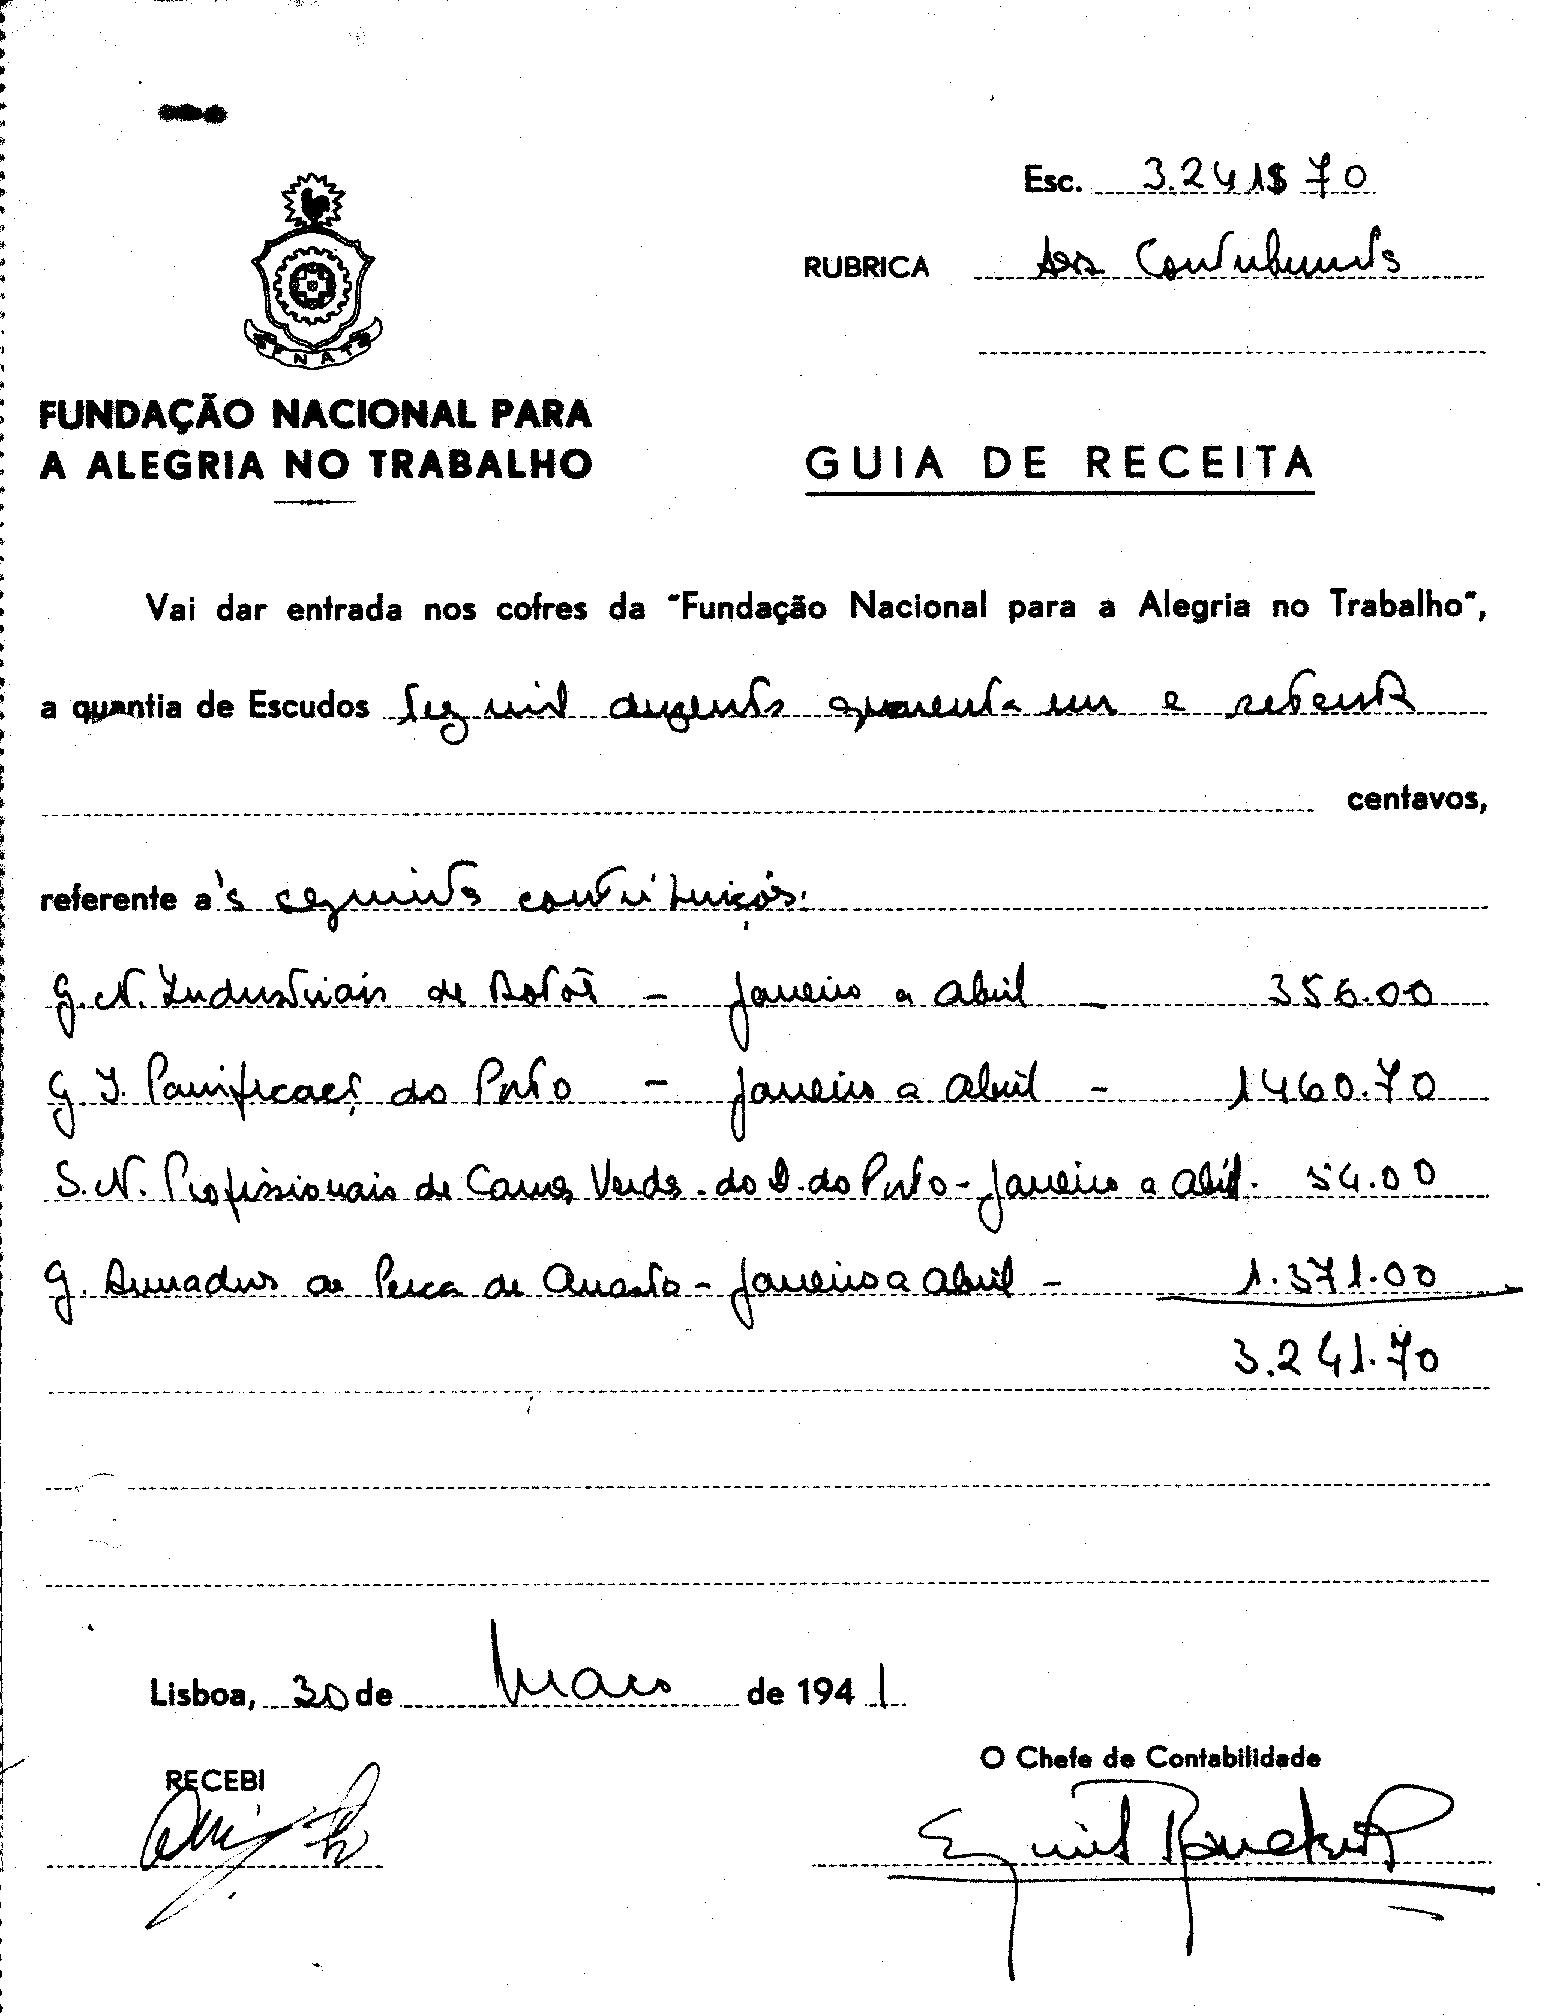 Esc. 3.241$70
RUBRICA dos Contribuintes
FNAT
FUNDAÇÃO NACIONAL PARA
A ALEGRIA NO TRABALHO
GUIA DE RECEITA
Vai dar entrada nos cofres da "Fundação Nacional para a Alegria no Trabalho",
a quantia de Escudos Trez mil duzentos quarenta um e setenta
centavos,
referente a's seguintes contribuições:
G. N. Industriais de - Janeiro a Abril - 356.00
G. I. Panificação do Porto - Janeiro a Abril - 1460.70
S. N. Profissionais de Carnes Verdes do D. do Porto - Janeiro a Abril. 54.00
G. Armadores de Pesca de Arrasto - Janeiro a Abril - 1.371.00
3.241.70
Lisboa, 30 de Maio de 1941
RECEBI
O Chefe de Contabilidade